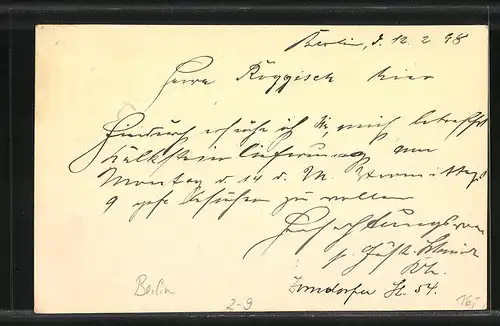 Berlin, d. 12. 2. 98
Herrn Röggisch hier
Hierdurch ersuche ich Sie, mich betreffs
Kalksteinlieferung am
Montag d. 14 d. M. Vormittags
9 gefl. besuchen zu wollen
Hochachtungsvoll
p. Gust.
Zorndorfer St. 54.
Berlin
2-9